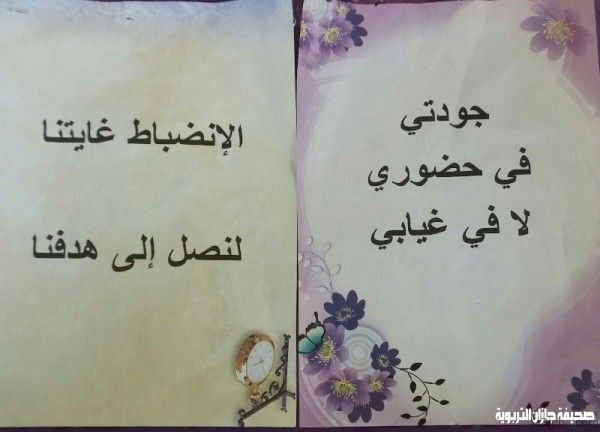 جودتي
في حضوري
لا في غيابي
الإنضباط غايتنا
لنصل إلى هدفنا
صحيفة جازان التربوية